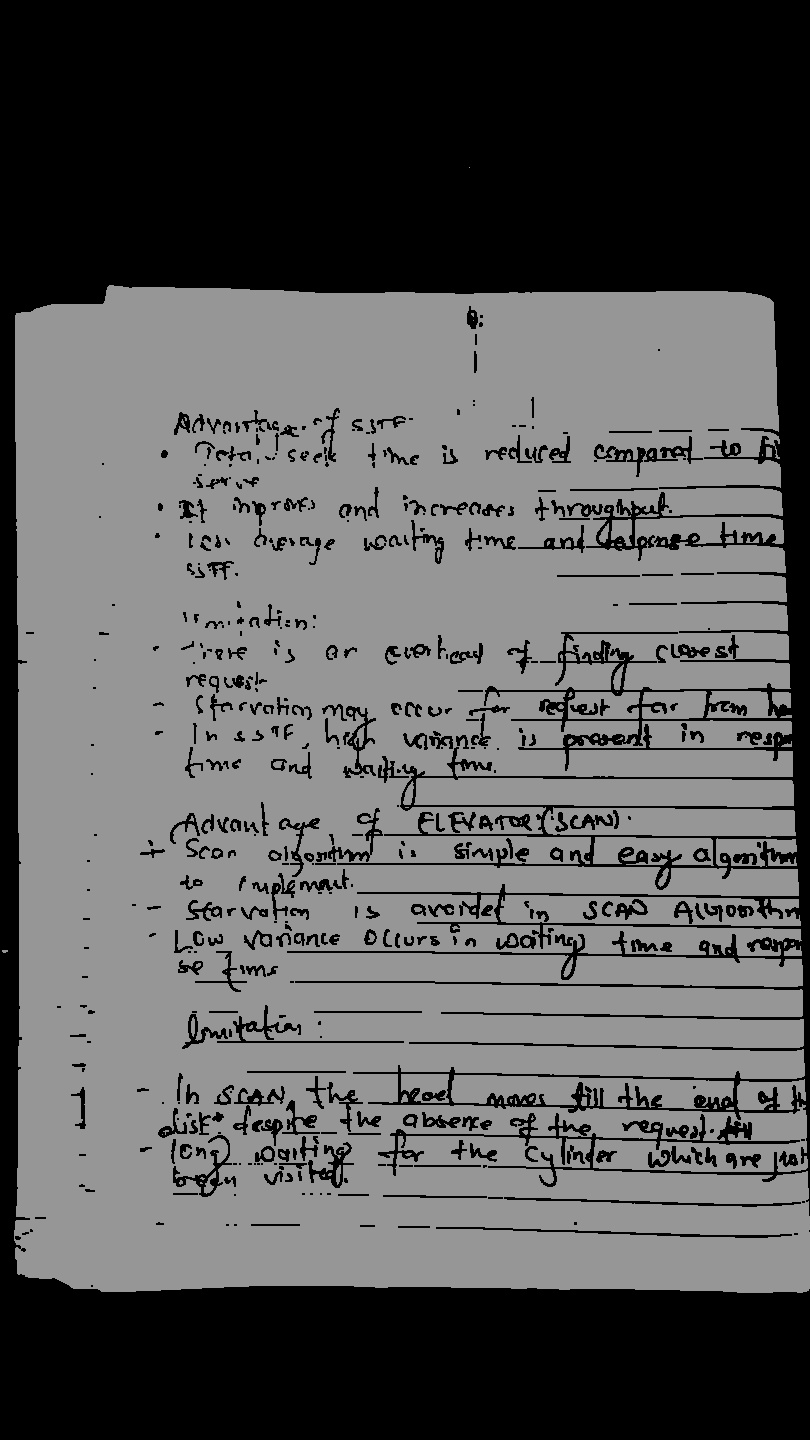 Advantage of SSTF
• Total seek time is reduced compared to
serve
• It improves and increases throughput.
• less average waiting time and response time
SSTF.
limitation:
- There is an overhead of finding closest
request
- Starvation may occur for request far from
- In SSTF, high variance is present in
time and waiting time.
Advantage of ELEVATOR (SCAN).
+ Scan algorithm is simple and easy algorithm
to implement.
- Starvation is avoided in SCAN Algorithm
- Low variance occurs in waiting time and respon
se time
limitation:
- In SCAN, the head moves till the end of
disk despite the absence of the request. till
- long waiting for the cylinder which are just
been visited.